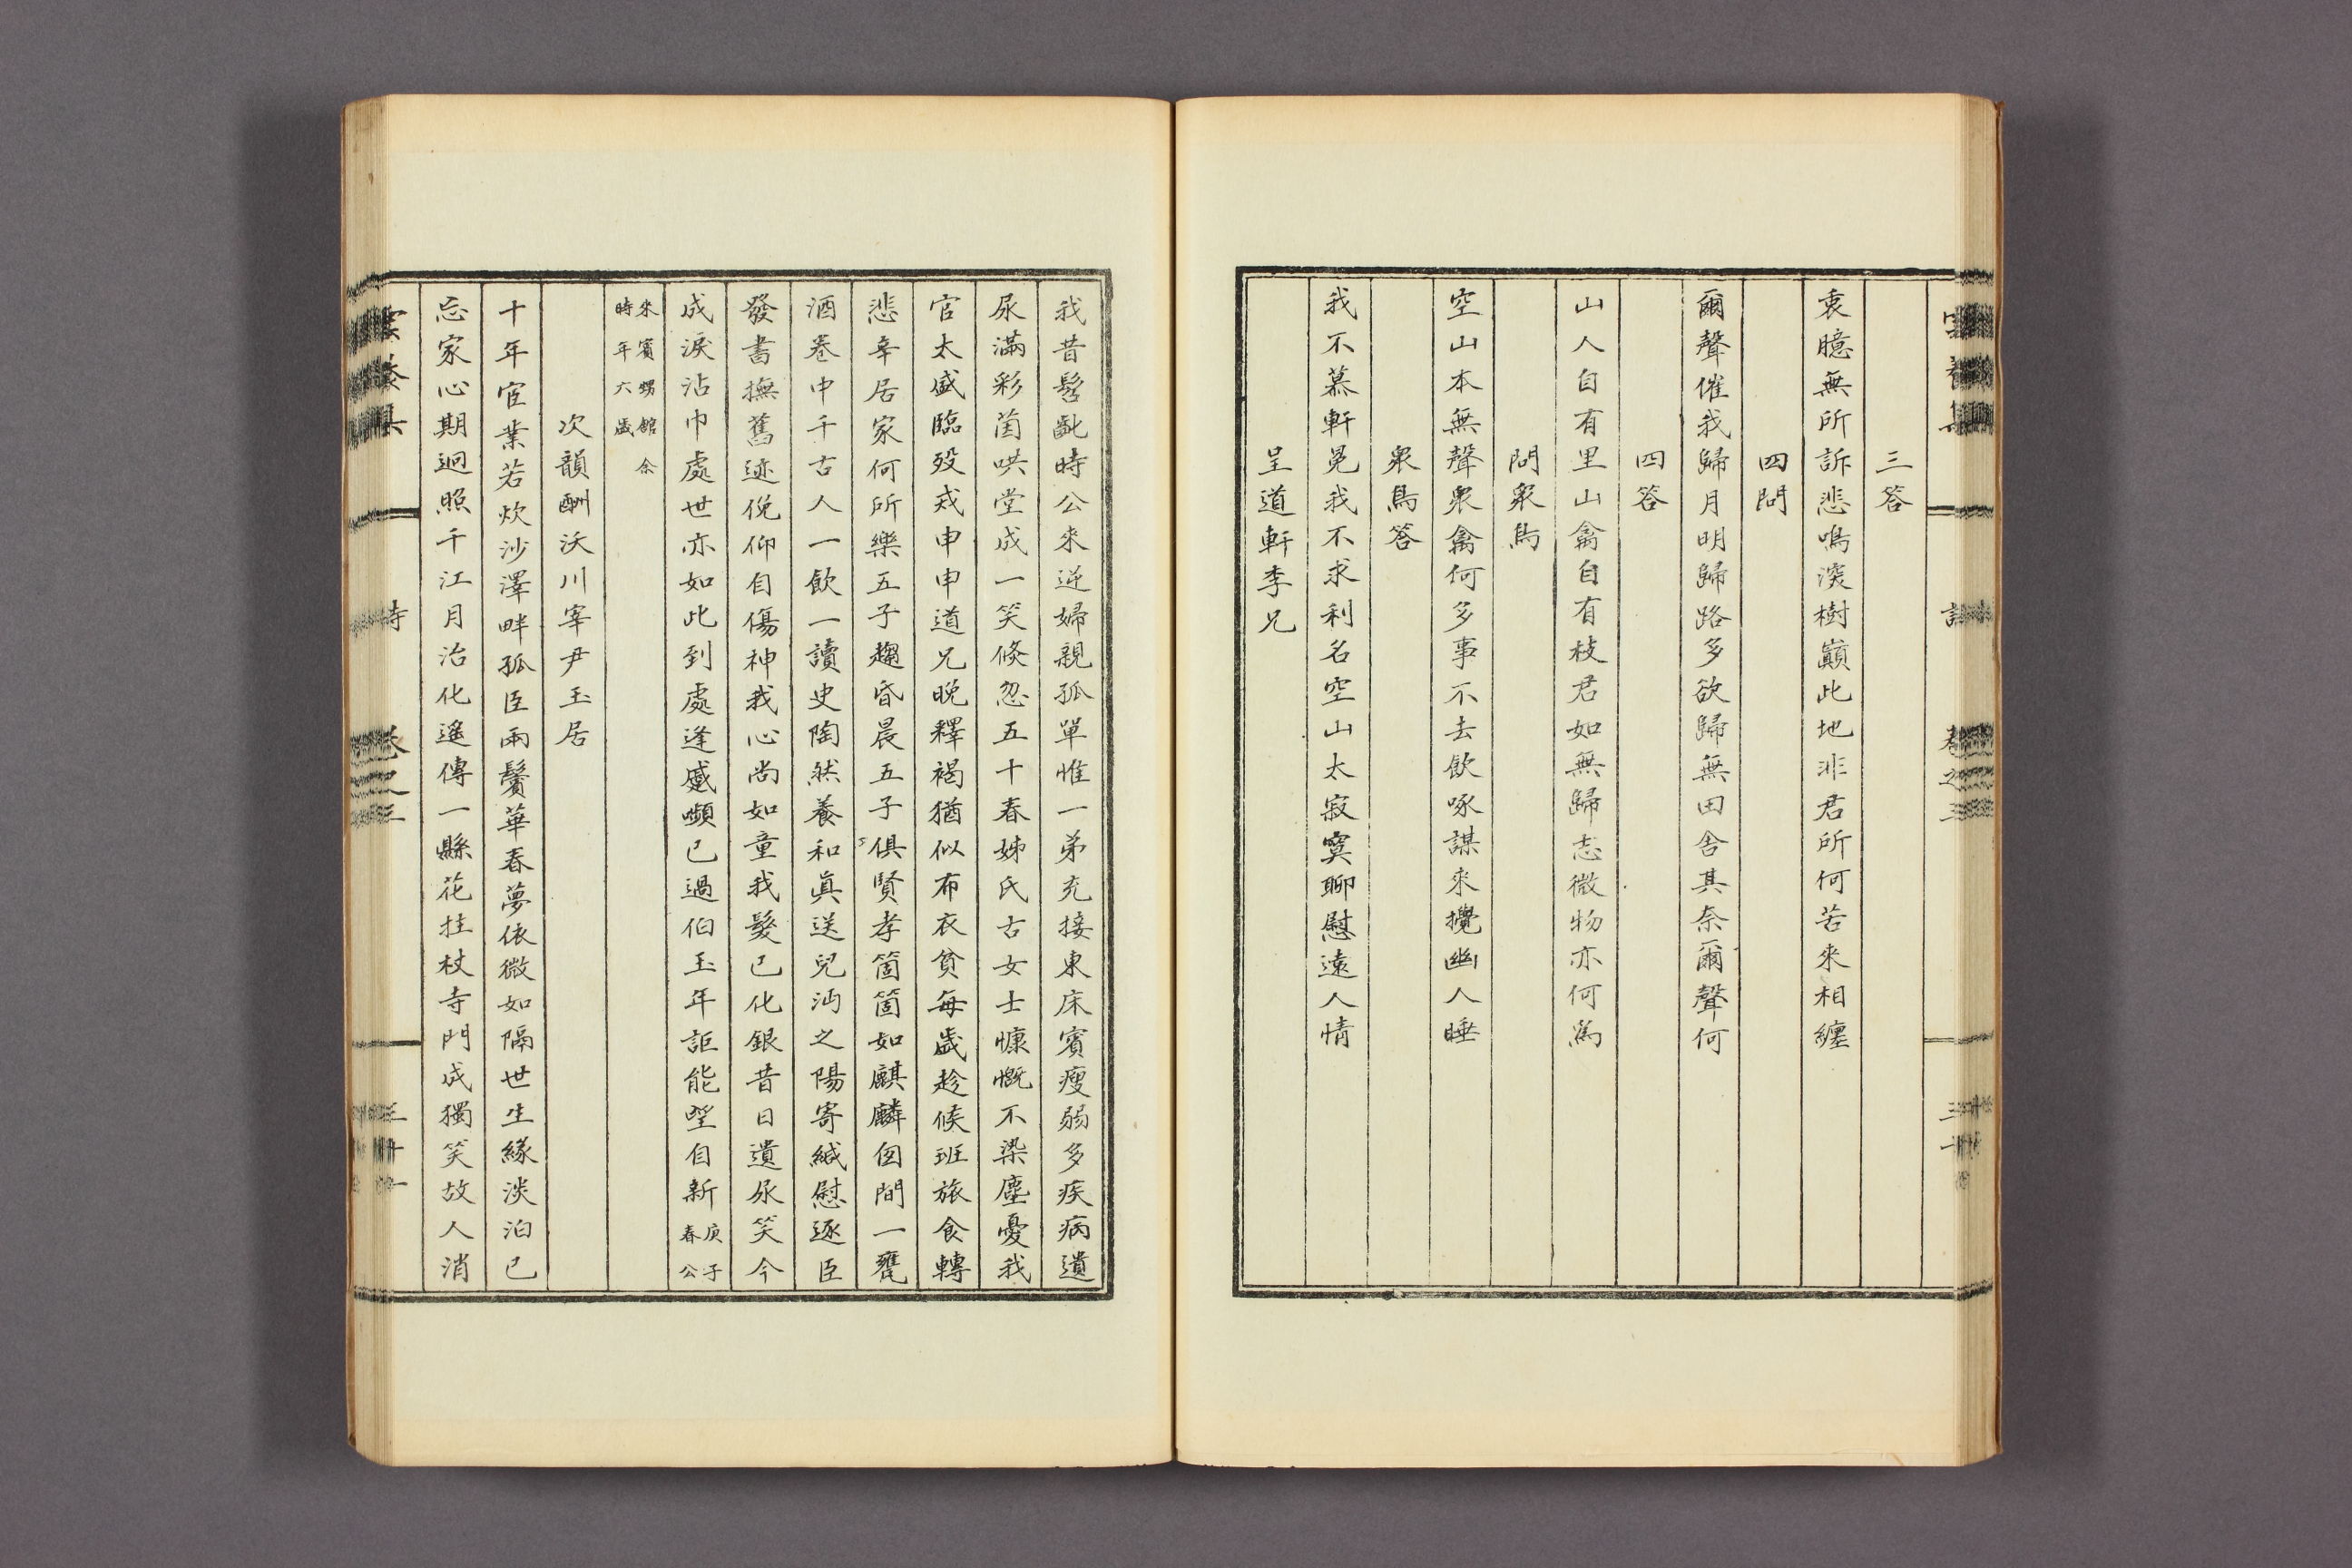 三答
衷臆無所訴悲鳴深樹巓此地非君所何苦來相纏
四問
爾聲催我歸月明歸路多欲歸無田舍其奈爾聲何
四答
山人自有里山禽自有枝君如無歸志微物亦何爲
問衆鳥
空山本無聲衆禽何多事不去飲啄謀來攪幽人睡
衆鳥答
我不慕軒冕我不求利名空山太寂寞聊慰遠人情
呈道軒李兄
我昔髫齔時公來逆婦親孤單惟一弟充接東床賓瘦弱多疾病遺
尿滿彩茵哄堂成一笑倐忽五十春姊氏古女士慷慨不染塵憂我
官太盛臨歿戒申申道兄晩釋褐猶似布衣貧每歲趁候班旅食轉
悲辛居家何所樂五子趨昏晨五子俱賢孝箇箇如麒麟囱間一甕
酒卷中千古人一飮一讀史陶然養和眞送兒沔之陽寄緘慰逐臣
發書撫舊迹俛仰自傷神我心尚如童我髮已化銀昔日遺尿笑今
成淚沾巾處世亦如此到處逢蹙嚬已過伯玉年詎能望自新庚子春公
來賓甥館余時年六歲
次韻酬沃川宰尹玉居
十年宦業若炊沙澤畔孤臣兩鬢華春夢依微如隔世生緣淡泊已
忘家心期逈照千江月治化遙傳一縣花拄杖寺門成獨笑故人消